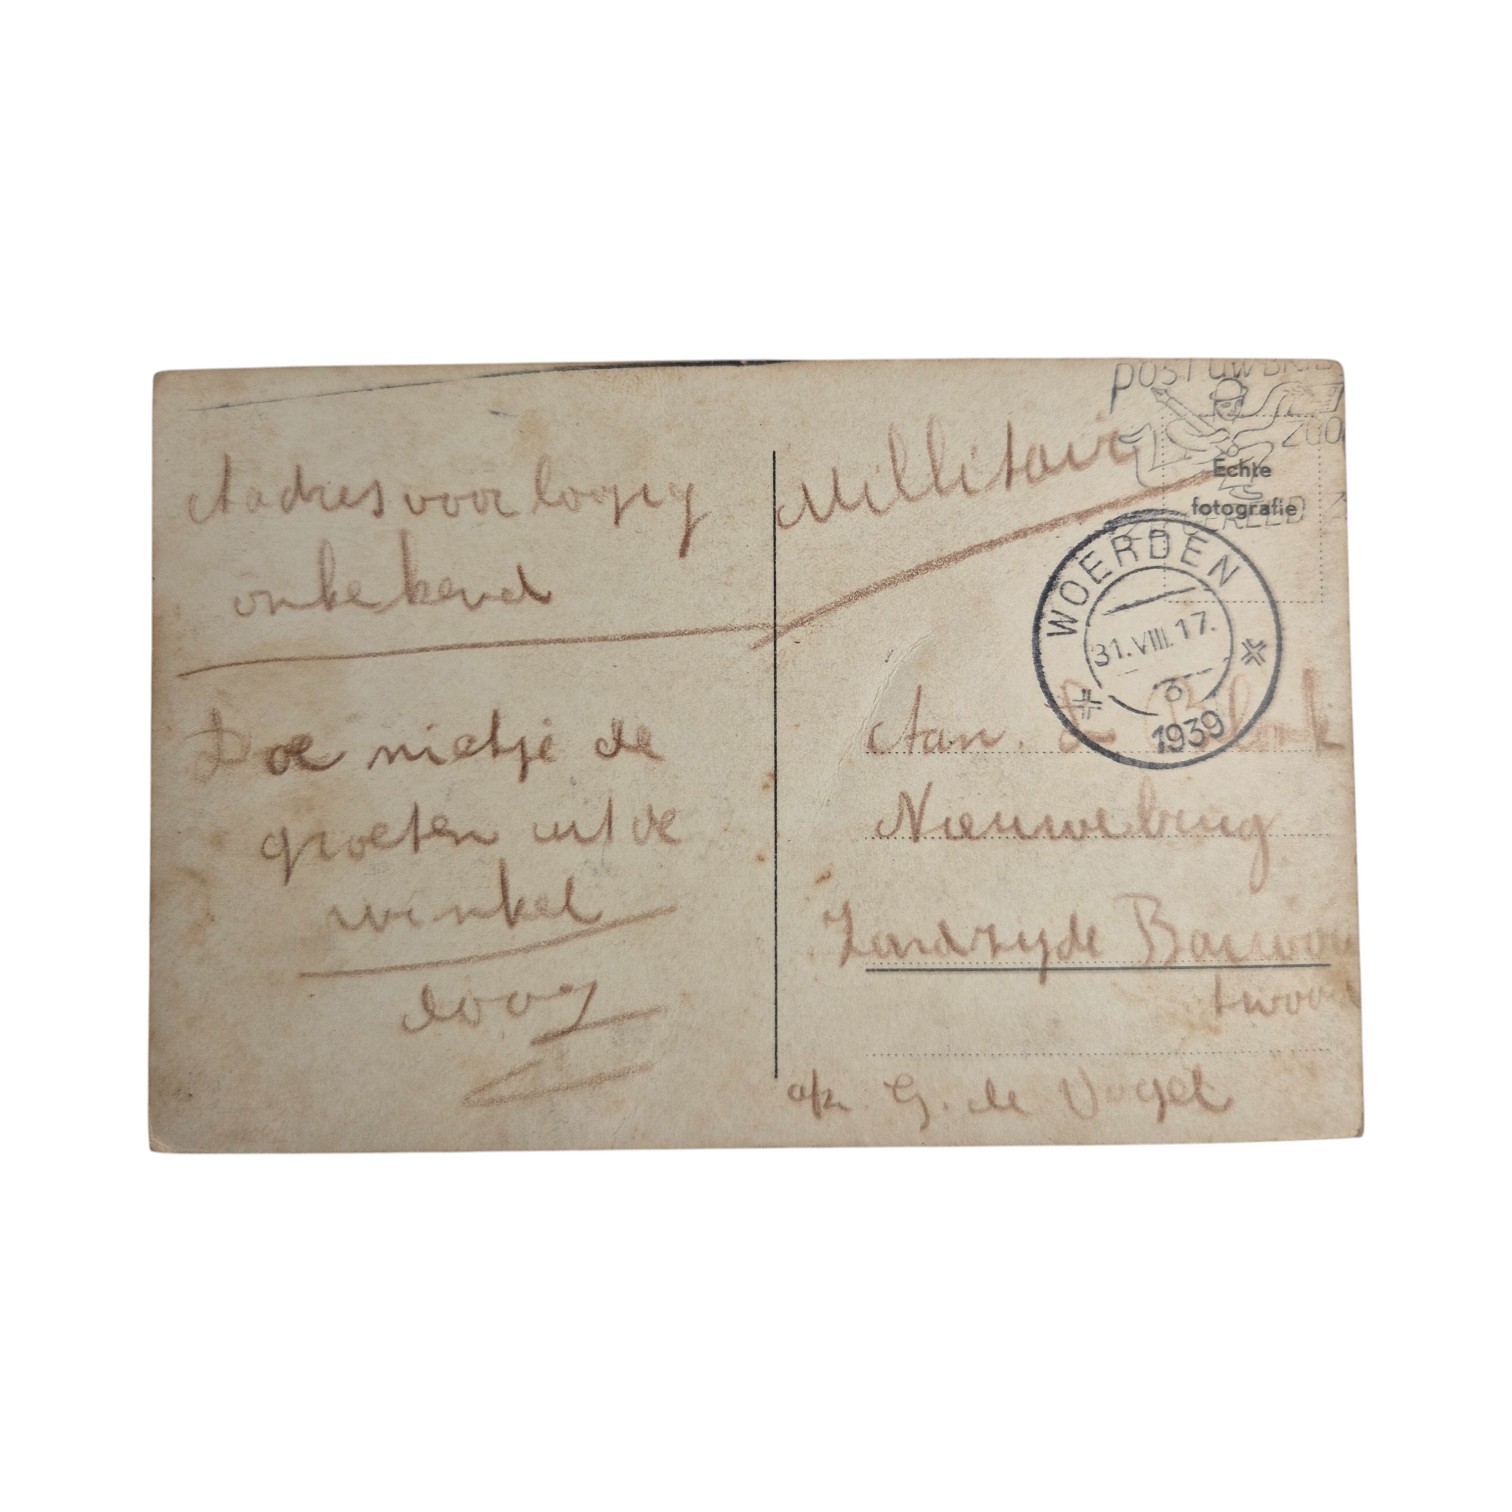 Aadres voorlopig
onbekend
Doe nietje de
groeten uit de
winkel
dooog
Millitair
POST UW BRIE
Echte
fotografie
WOERDEN
31.VIII.17.
1939
Aan.
Nieuwebrug
Zandzyde
afz. G. de Vogel